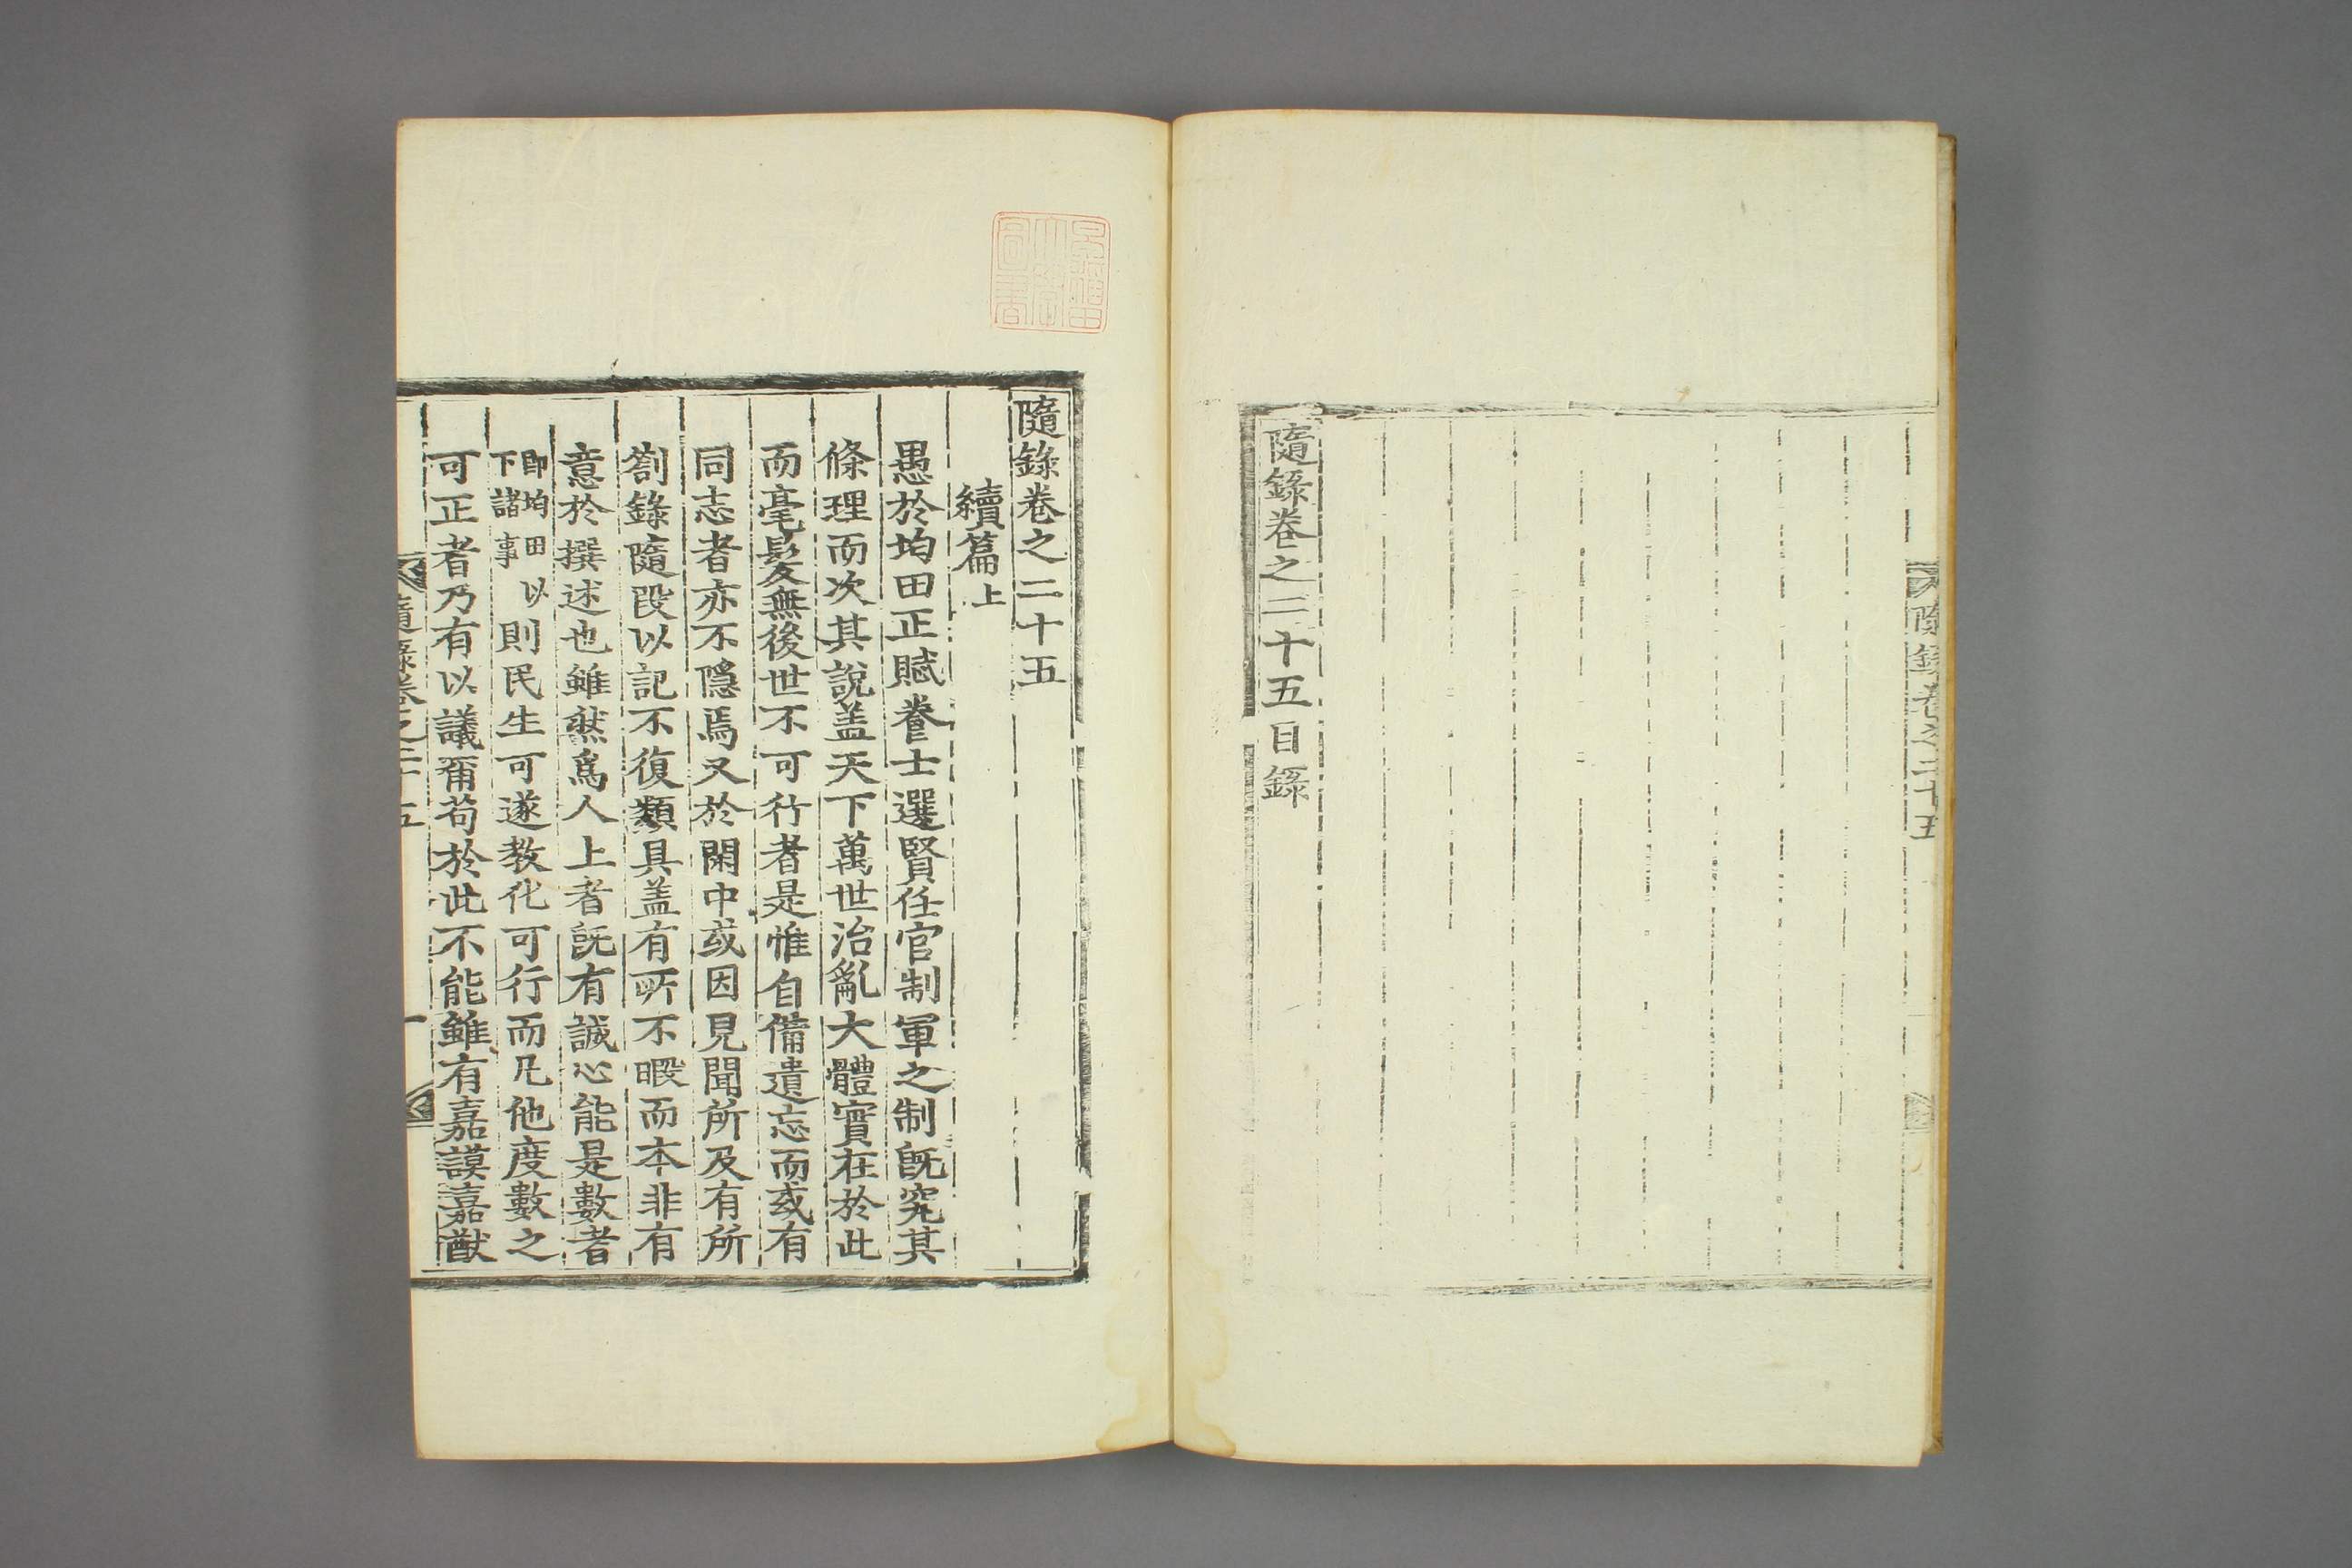 隨錄卷之二十五
隨錄卷之二十五目錄
隨錄卷之二十五
續篇上
愚於均田正賦養士選賢任官制軍之制旣究其
條理而次其說盖天下萬世治亂大體實在於此
而毫髮無後世不可行者是惟自備遺忘而或有
同志者亦不隱焉又於閑中或因見聞所及有所
劄錄隨段以記不復類具盖有所不暇而本非有
意於撰述也雖然爲人上者旣有誠心能是數者
卽均田以
下諸事
則民生可遂敎化可行而凡他度數之
可正者乃有以議爾苟於此不能雖有嘉謨嘉猷
隨錄卷之二十五
一